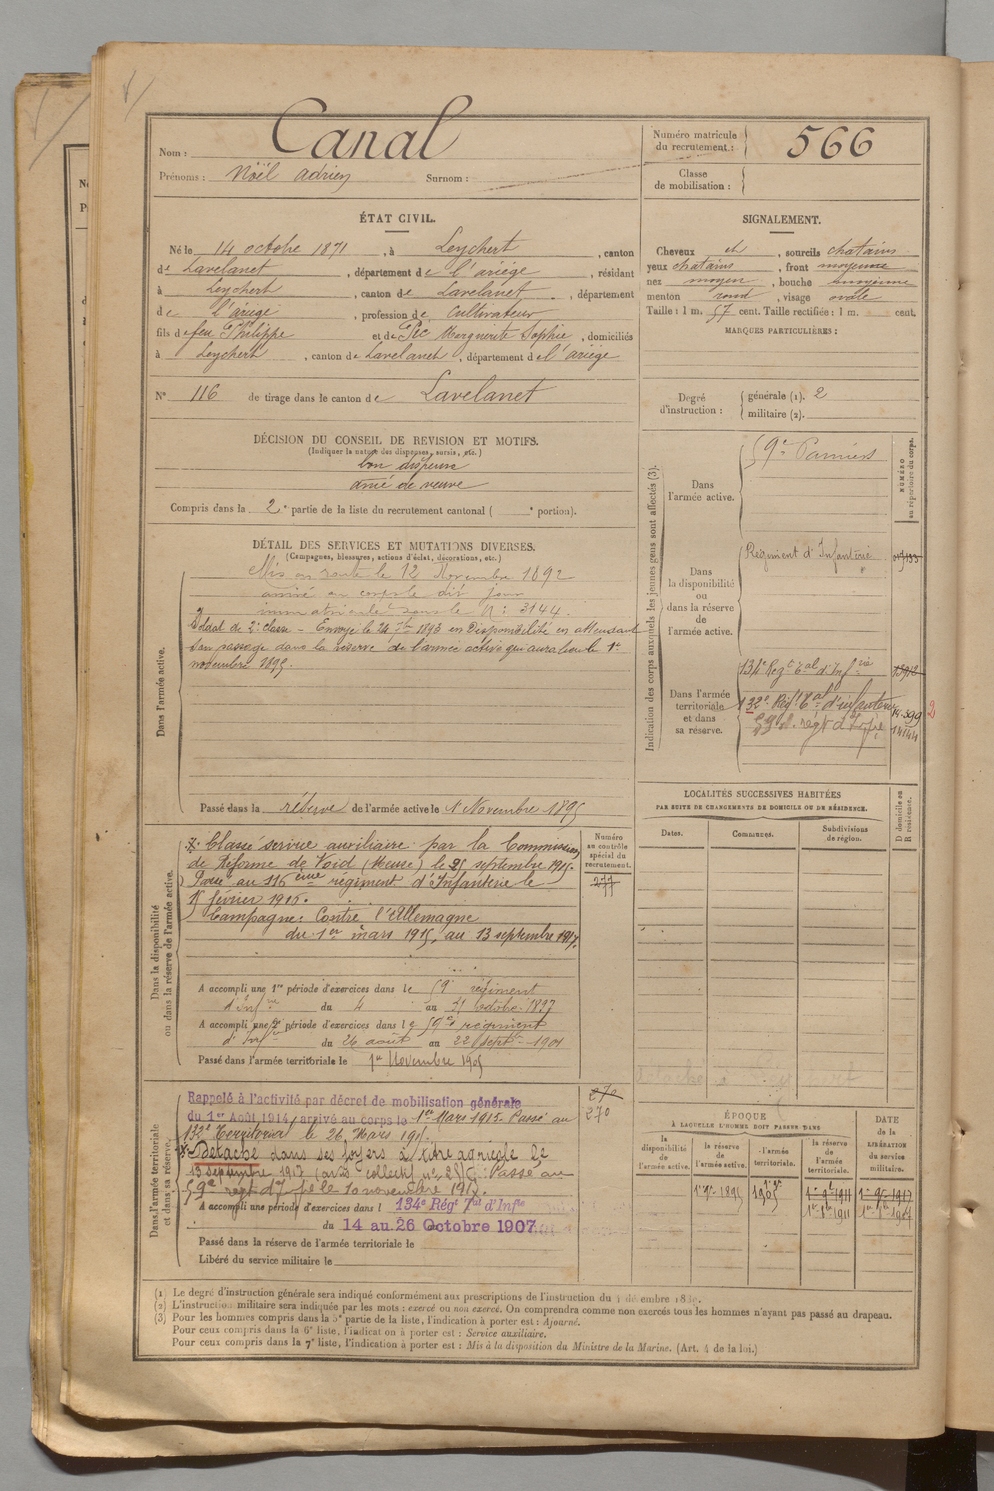 Nom : Canal
Prénoms : Noël adrien Surnom :
Numéro matricule
du recrutement : 566
Classe
de mobilisation :
ÉTAT CIVIL.
Né le 14 octobre 1871, à Leychert, canton
de Lavelanet, département de l'ariège, résidant
à Leychert, canton de Lavelanet, département
de l'ariege, profession de Cultivateur
fils de feu Philippe et de Pic Marguerite Sophie, domiciliés
à Leychert, canton de Lavelanet, département de l'ariège
N° 116 de tirage dans le canton de Lavelanet
SIGNALEMENT.
Cheveux et, sourcils chatains
yeux chatains, front moyenne
nez moyen, bouche moyenne
menton rond, visage ovale
Taille : 1 m. 57 cent. Taille rectifiée : 1 m. cent.
MARQUES PARTICULIÈRES :
Degré
d'instruction :
générale (1). 2
militaire (2).
DÉCISION DU CONSEIL DE REVISION ET MOTIFS.
(Indiquer la nature des dispenses, sursis, etc.)
bon dispensé
ainé de veuve
Compris dans la 2e partie de la liste du recrutement cantonal ( e portion).
DÉTAIL DES SERVICES ET MUTATIONS DIVERSES.
(Campagnes, blessures, actions d'éclat, décorations, etc.)
Dans l'armée active.
Mis en route le 12 Novembre 1892
arrivé au corps le dit jour
immatriculé sous le N: 3144.
Soldat de 2e classe – Envoyé le 24 7bre 1893 en Disponibilité en attendant
son passage dans la réserve de l'armée active qui aura lieu le 1er
novembre 1895.
Passé dans la réserve de l'armée active le 1 Novembre 1895
Indication des corps auxquels les jeunes gens sont affectés (3).
NUMÉRO
au répertoire du corps.
Dans
l'armée active.
59e Pamiers
Dans
la disponibilité
ou
dans la réserve
de
l'armée active.
Régiment d'Infanterie
Dans l'armée
territoriale
et dans
sa réserve.
134e Régt Tal d'Infrie
132e Régt Tal d'infanterie 14.399 2
59e régt d'Infie 14144
Dans la disponibilité
ou dans la réserve de l'armée active.
Numéro
au contrôle
spécial du
recrutement.
277
Classé service auxiliaire par la Commission
de Réforme de Void (Meuse) le 25 septembre 1915.
Passé au 116ème régiment d'Infanterie le
15 février 1916.
Campagne: Contre l'Allemagne
du 1er mars 1915, au 13 septembre 1917.
A accompli une 1re période d'exercices dans le 59e régiment
d'Infrie du 4 au 31 octobre 1897
A accompli une 2e période d'exercices dans le 59e régiment
d'Infrie du 26 août au 22 Septbre 1901
Passé dans l'armée territoriale le 1er Novembre 1905
LOCALITÉS SUCCESSIVES HABITÉES
PAR SUITE DE CHANGEMENTS DE DOMICILE OU DE RÉSIDENCE.
D domicile ou
R résidence.
Dates. Communes. Subdivisions
de région.
Dans l'armée territoriale
et dans sa réserve.
Rappelé à l'activité par décret de mobilisation générale
du 1er Août 1914, arrivé au corps le 1er Mars 1915. Passé au
132e Territorial le 26 Mars 1915.
Détaché dans ses foyers à titre agricole le
13 septembre 1917 Passé au
59e regt d'Infie le 10 novembre 1917.
270
270
A accompli une période d'exercices dans l 134e Régt Tal d'Infie
du 14 au 26 Octobre 1907
Passé dans la réserve de l'armée territoriale le
Libéré du service militaire le
ÉPOQUE
À LAQUELLE L'HOMME DOIT PASSER DANS
DATE
de la
LIBÉRATION
du service
militaire.
la
disponibilité
de l'armée active.
la réserve
de
l'armée active.
l'armée
territoriale.
la réserve
de
l'armée
territoriale.
1er 9bre 1895 1er 9bre 1905 1er 9bre 1911 1er 9bre 1917
1er 8bre 1911 1er 8bre 1917
(1) Le degré d'instruction générale sera indiqué conformément aux prescriptions de l'instruction du décembre
(2) L'instruction militaire sera indiquée par les mots : exercé ou non exercé. On comprendra comme non exercés tous les hommes n'ayant pas passé au drapeau.
(3) Pour les hommes compris dans la 5e partie de la liste, l'indication à porter est : Ajourné.
Pour ceux compris dans la 6e liste, l'indication à porter est : Service auxiliaire.
Pour ceux compris dans la 7e liste, l'indication à porter est : Mis à la disposition du Ministre de la Marine. (Art. 4 de la loi.)